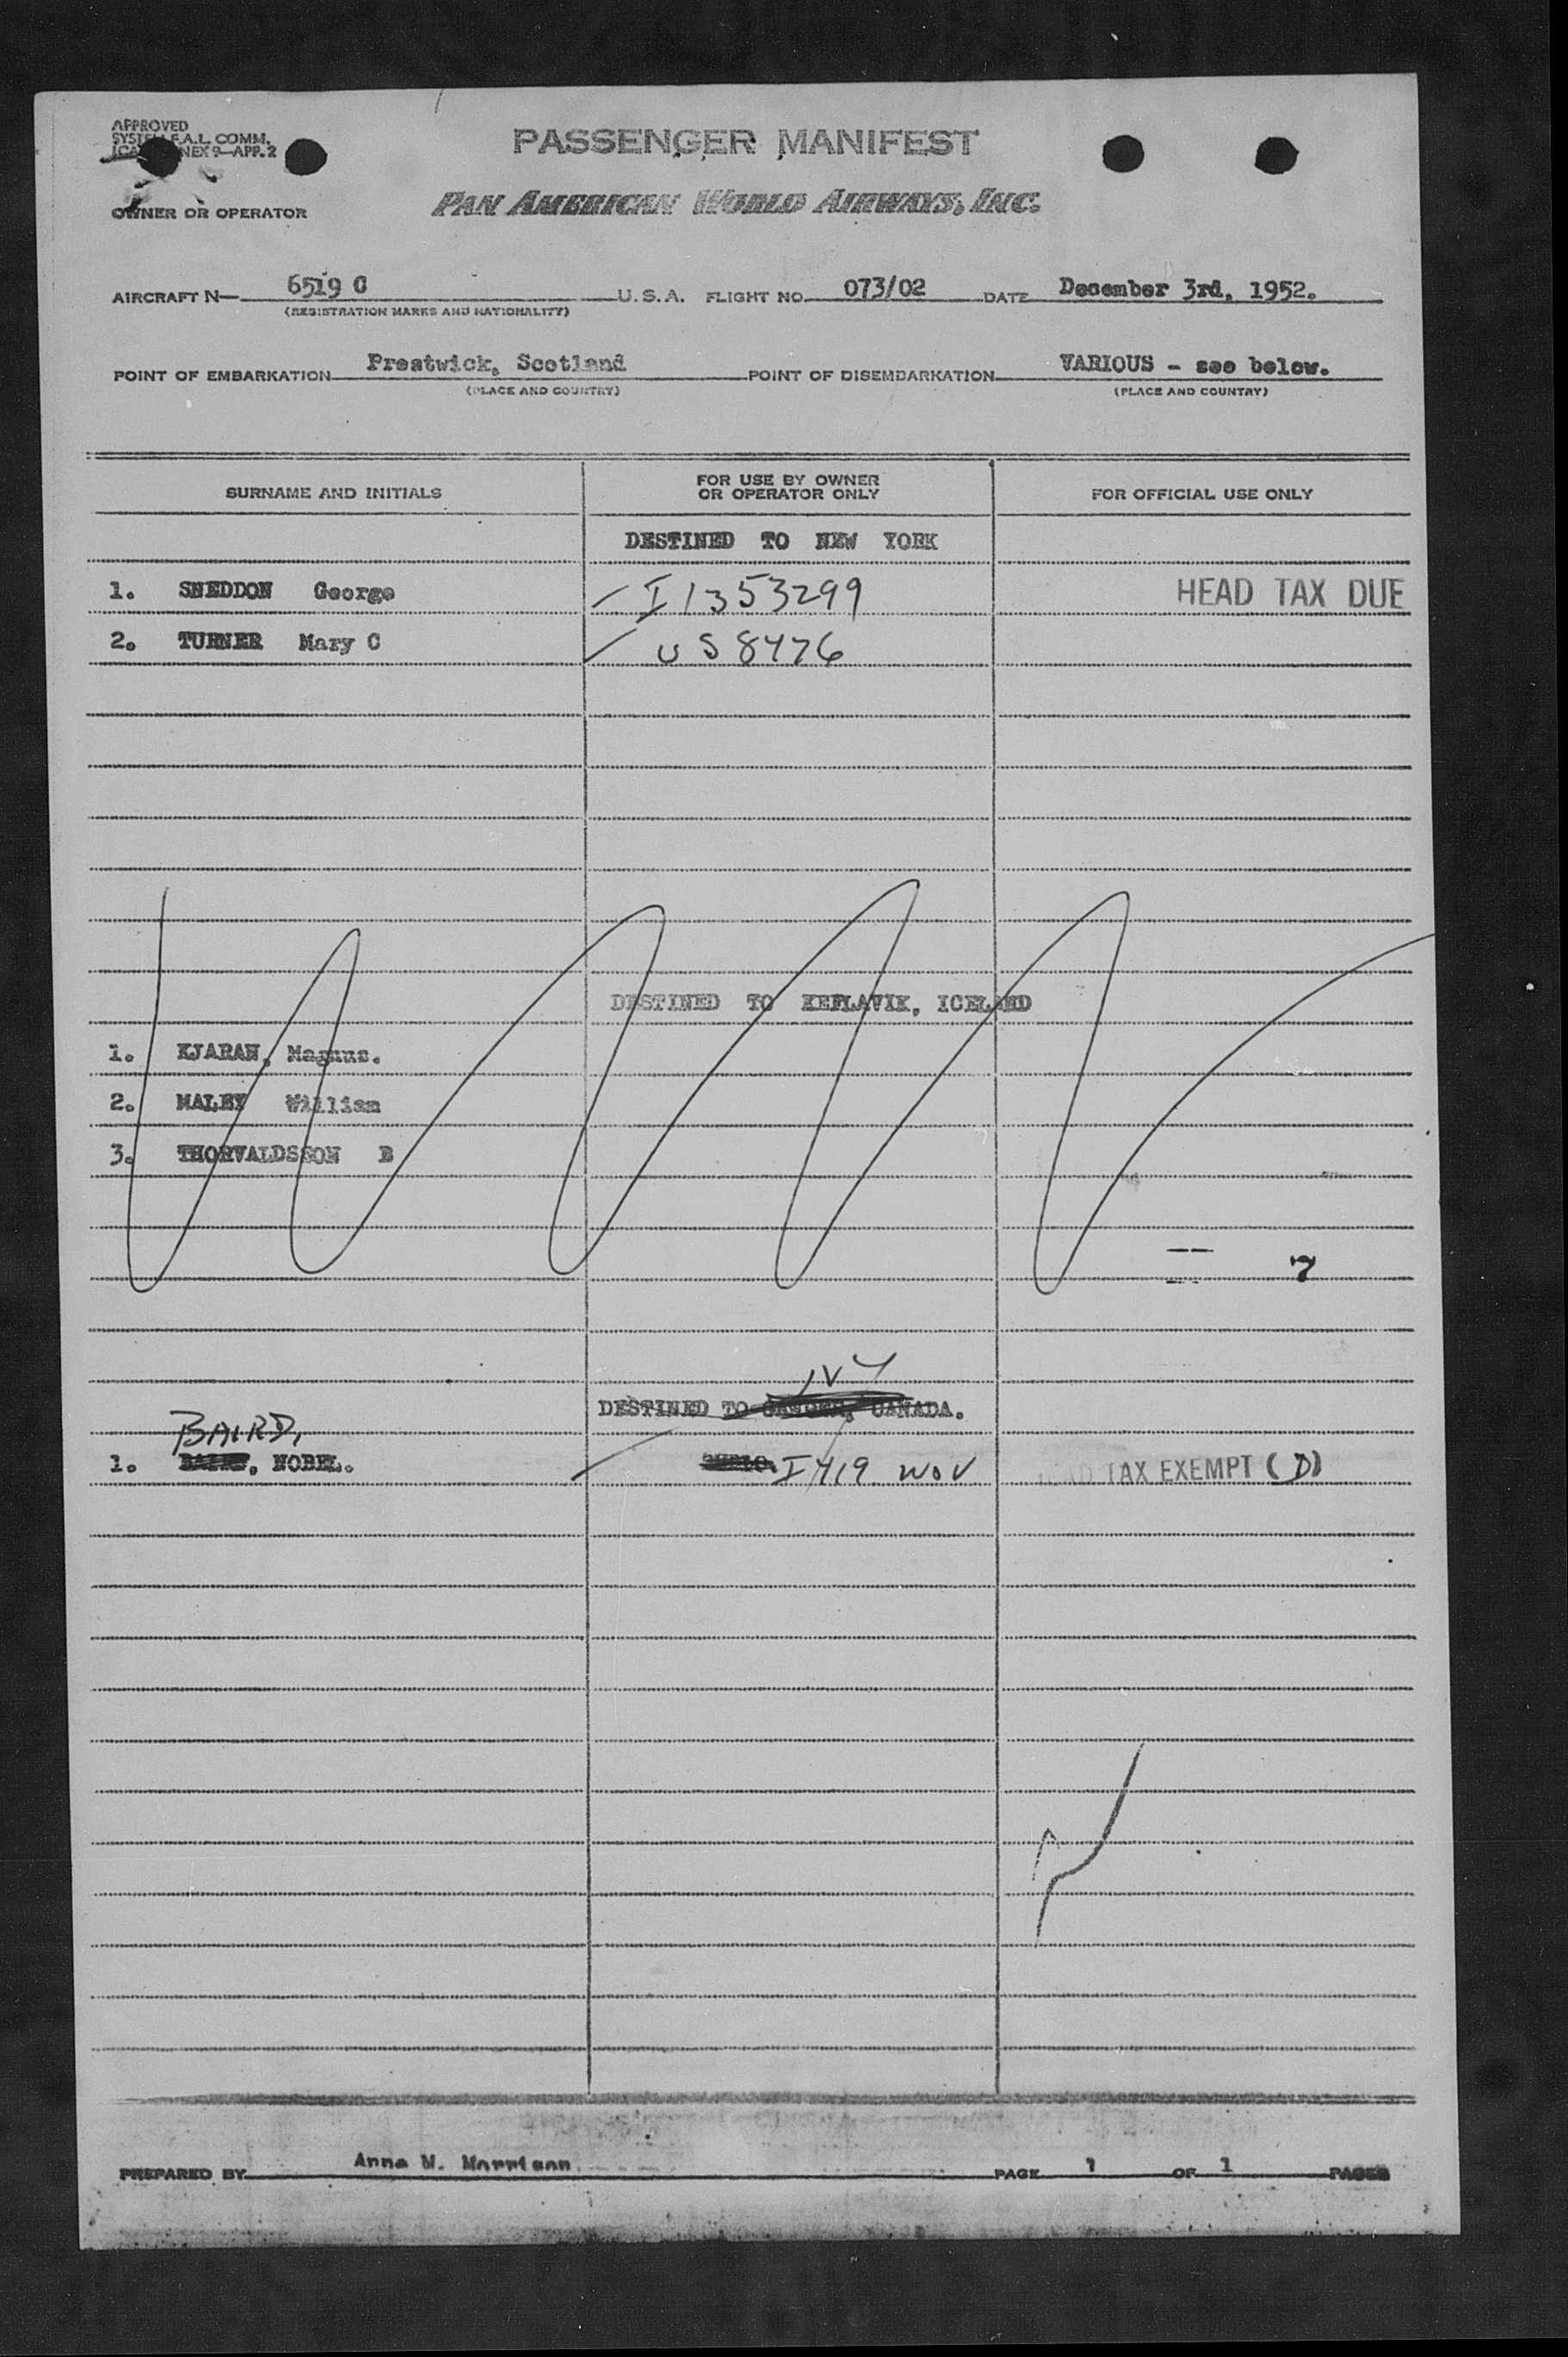 APPROVED
SYSTEM F.A.L. COMM.
NEX 9—APP. 2
PASSENGER MANIFEST
OWNER OR OPERATOR
PAN AMERICAN WORLD AIRWAYS, INC.
AIRCRAFT N— 6519 C U.S.A. FLIGHT NO. 073/02 DATE December 3rd, 1952.
(REGISTRATION MARKS AND NATIONALITY)
POINT OF EMBARKATION Prestwick, Scotland POINT OF DISEMBARKATION VARIOUS - see below.
(PLACE AND COUNTRY) (PLACE AND COUNTRY)
SURNAME AND INITIALS FOR USE BY OWNER OR OPERATOR ONLY FOR OFFICIAL USE ONLY
DESTINED TO NEW YORK
1. SNEDDON George I 1353299 HEAD TAX DUE
2. TURNER Mary C US 8476
DESTINED TO KEFLAVIK, ICELAND
1. KJARAN, Magnus.
2. MALEY William
3. THORVALDSSON B
7
NY
DESTINED TO CANADA.
BAIRD,
1. NOBEL. I 419 TAX EXEMPT (D)
PREPARED BY Anna M. Morrison PAGE 1 OF 1 PAGES